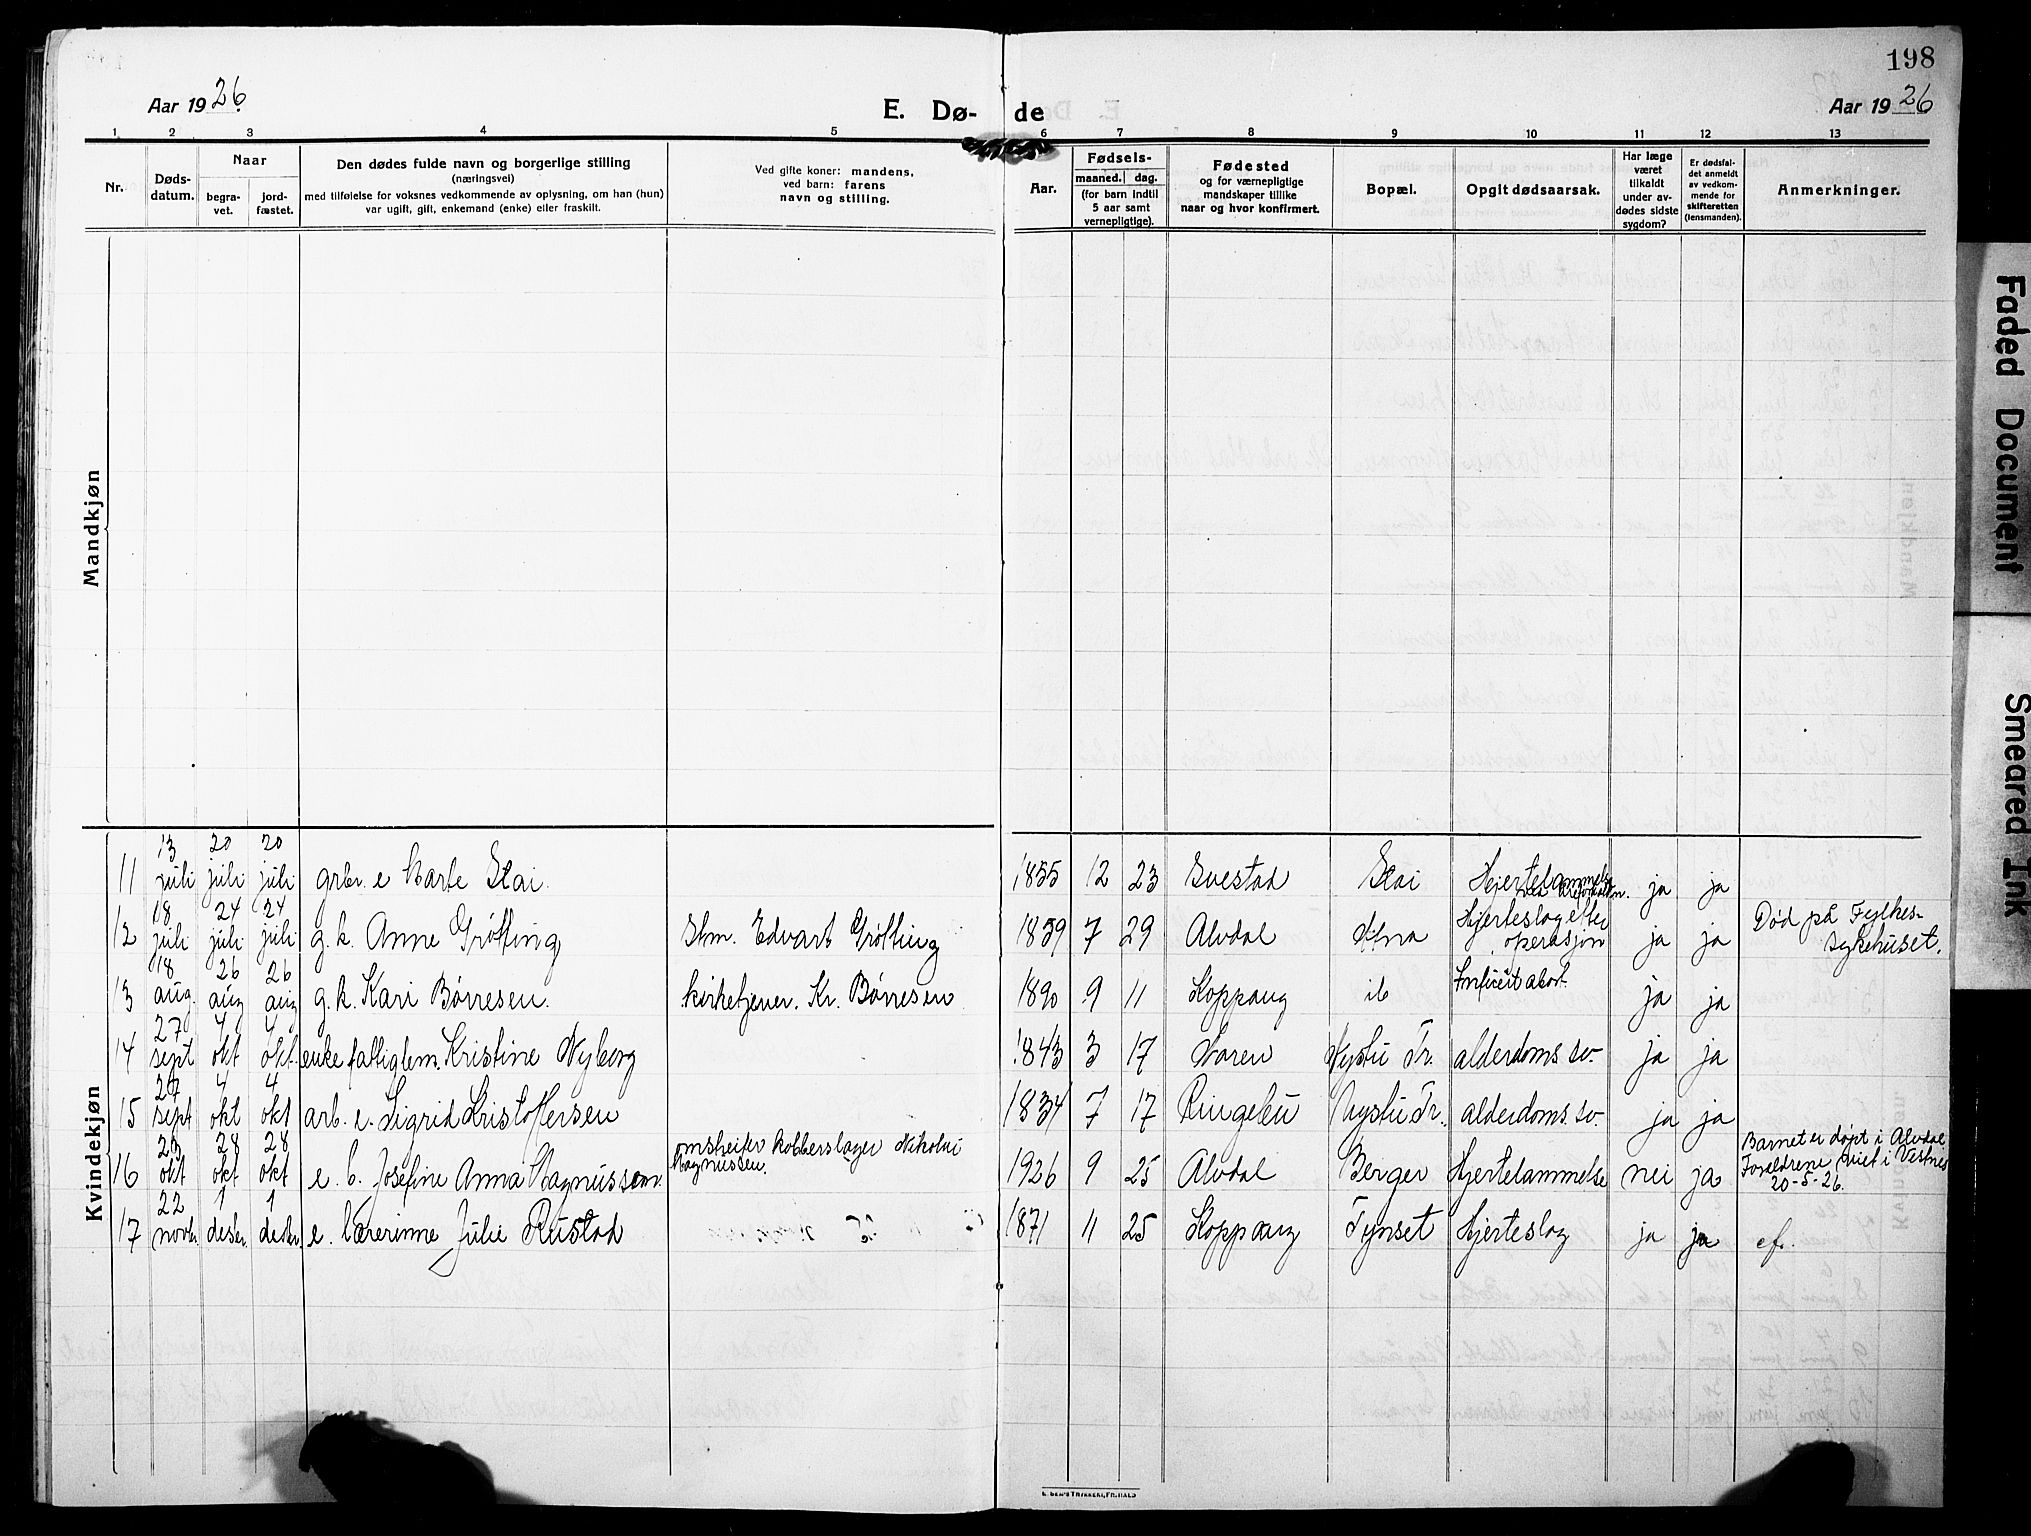 198
Aar 1926
E. Dø- de
Aar 1926
1 2 3 4 5 6 7 8 9 10 11 12 13
Nr.
Døds-
datum.
Naar
begra-
vet.
jord-
fæstet.
Den dødes fulde navn og borgerlige stilling
(næringsvei)
med tilføielse for voksnes vedkommende av oplysning, om han (hun)
var ugift, gift, enkemand (enke) eller fraskilt.
Ved gifte koner: mandens,
ved barn: farens
navn og stilling.
Aar.
Fødsels-
maaned. dag.
(for barn indtil
5 aar samt
vernepligtige).
Fødested
og for værnepligtige
mandskaper tillike
naar og hvor konfirmert.
Bopæl.
Opgit dødsaarsak.
Har læge
været
tilkaldt
under av-
dødes sidste
sygdom?
Er dødsfal-
det anmeldt
av vedkom-
mende for
skifteretten
(lensmanden).
Anmerkninger.
Mandkjøn
Kvindekjøn
11 13 juli 20 juli 20 juli grbr. e Marte Stai 1855 12 23 Evestad Stai Hjertelammelse ja ja
12 18 juli 24 juli 24 juli g. k. Anne Grøtting Stm. Edvart Grøtting 1859 7 29 Alvdal Atna Hjerteslag efter operasjon ja ja Død på Fylkes-
sykehuset.
13 18 aug. 26 aug 26 aug g. k. Kari Børresen. kirketjener. Kr. Børresen 1890 9 11 Koppang ib abort. ja ja
14 27 sept 4 okt 4 okt. enke fattiglem. Kristine Nyborg 1843 3 17 Nystu Tr. alderdoms sv. ja ja
15 27 sept 4 okt 4 okt arb. e. Sigrid Kristoffersen 1834 7 17 Ringebu Nystu Tr. alderdoms.sv. ja ja
16 23 okt 28 okt 28 okt e. b. Josefine Anna Magnussen. omstreifer kobberslager Nikolai
Magnussen. 1926 9 25 Alvdal Berger Hjertelammelse nei ja Barnet er døpt i Alvdal
Forældrene viet i Vestnes
20-5-26.
17 22 novbr. 1 desbr. 1 desbr. e. lærerinne Julie Rustad 1871 11 25 Koppang Tynset Hjerteslag ja ja ef.
Faded Document
Smeared Ink